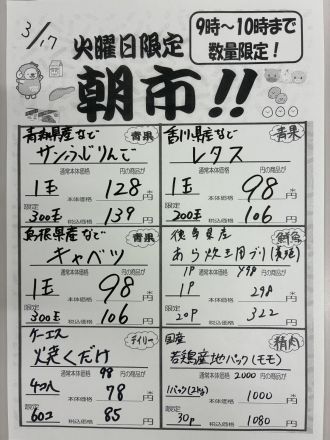 3/17
火曜日限定
9時～10時まで
数量限定！
朝市!!
青森県産など
青果
サンふじりんご
通常本体価格 円の商品が
1玉
本体価格
128
円
限定
300玉
税込価格
139
円
香川県産など
青果
レタス
通常本体価格 円の商品が
1玉
本体価格
98
円
限定
200玉
税込価格
106
円
島根県産など
青果
キャベツ
通常本体価格 円の商品が
1玉
本体価格
98
円
限定
300玉
税込価格
106
円
徳島県産
鮮魚
あら炊き用ブリ(養殖)
通常本体価格 498 円の商品が
1P
本体価格
298
円
限定
20P
税込価格
322
円
ケーエス
デイリー
火焼くだけ
通常本体価格 98 円の商品が
4コ入
本体価格
78
円
限定
60コ
税込価格
85
円
国産
精肉
若鶏産地パック(モモ)
通常本体価格 2000 円の商品が
1パック(2kg)
本体価格
1000
円
限定
30P
税込価格
1080
円